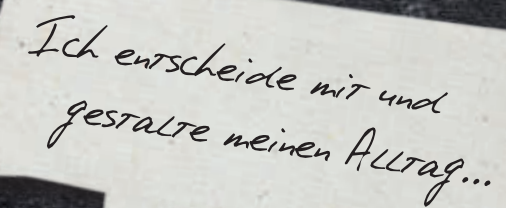 Ich entscheide mit und
gestalte meinen Alltag...